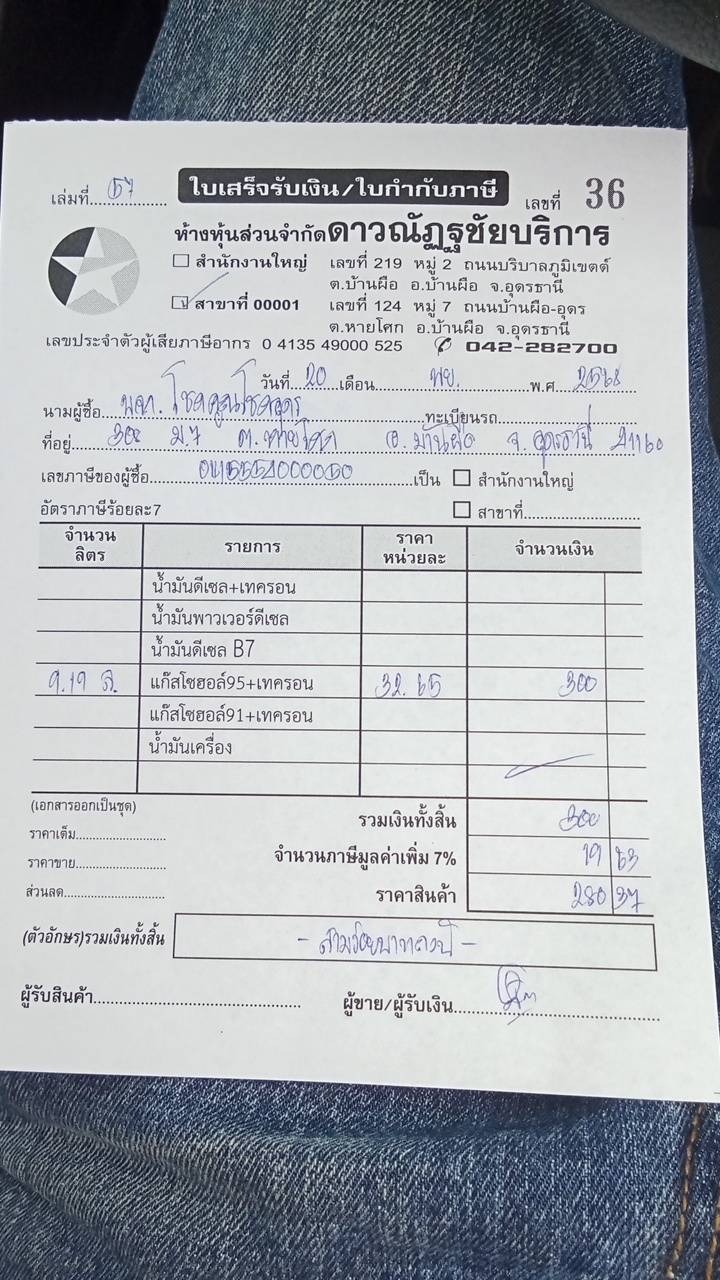 เล่มที่ 57 ใบเสร็จรับเงิน/ใบกำกับภาษี เลขที่ 36
ห้างหุ้นส่วนจำกัดดาวณัฏฐชัยบริการ
สำนักงานใหญ่ เลขที่ 219 หมู่ 2 ถนนบริบาลภูมิเขตต์
ต.บ้านผือ อ.บ้านผือ จ.อุดรธานี
สาขาที่ 00001 เลขที่ 124 หมู่ 7 ถนนบ้านผือ-อุดร
ต.หายโศก อ.บ้านผือ จ.อุดรธานี
เลขประจำตัวผู้เสียภาษีอากร 0 4135 49000 525 042-282700
วันที่ 20 เดือน พย. พ.ศ. 2568
นามผู้ซื้อ บจก. โชคคูณโชคอุดร ทะเบียนรถ
ที่อยู่ 300 ม.7 ต.หายโศก อ.บ้านผือ จ.อุดรธานี 41160
เลขภาษีของผู้ซื้อ เป็น สำนักงานใหญ่
อัตราภาษีร้อยละ7 สาขาที่
จำนวนลิตร รายการ ราคาหน่วยละ จำนวนเงิน
น้ำมันดีเซล+เทครอน
น้ำมันพาวเวอร์ดีเซล
น้ำมันดีเซล B7
9.19 ล. แก๊สโซฮอล์95+เทครอน 32.65 300
แก๊สโซฮอล์91+เทครอน
น้ำมันเครื่อง
(เอกสารออกเป็นชุด) รวมเงินทั้งสิ้น 300
ราคาเต็ม
จำนวนภาษีมูลค่าเพิ่ม 7% 19 63
ราคาขาย
ส่วนลด ราคาสินค้า 280 37
(ตัวอักษร)รวมเงินทั้งสิ้น - สามร้อยบาทถ้วน -
ผู้รับสินค้า ผู้ขาย/ผู้รับเงิน